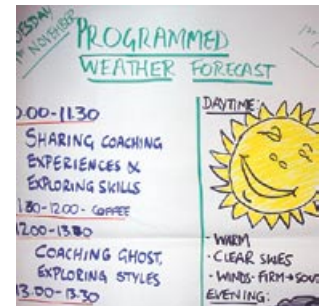 NOVEMBER
PROGRAMMED
WEATHER FORECAST
0.00-11.30
SHARING COACHING
EXPERIENCES &
EXPLORING SKILLS
1:30-12.00- COFFEE
12.00-13:30
COACHING GHOST,
EXPLORING STYLES
13.00-13.30
DAYTIME:
- WARM
- CLEAR SKIES
- WINDS- FIRM→
EVENING: